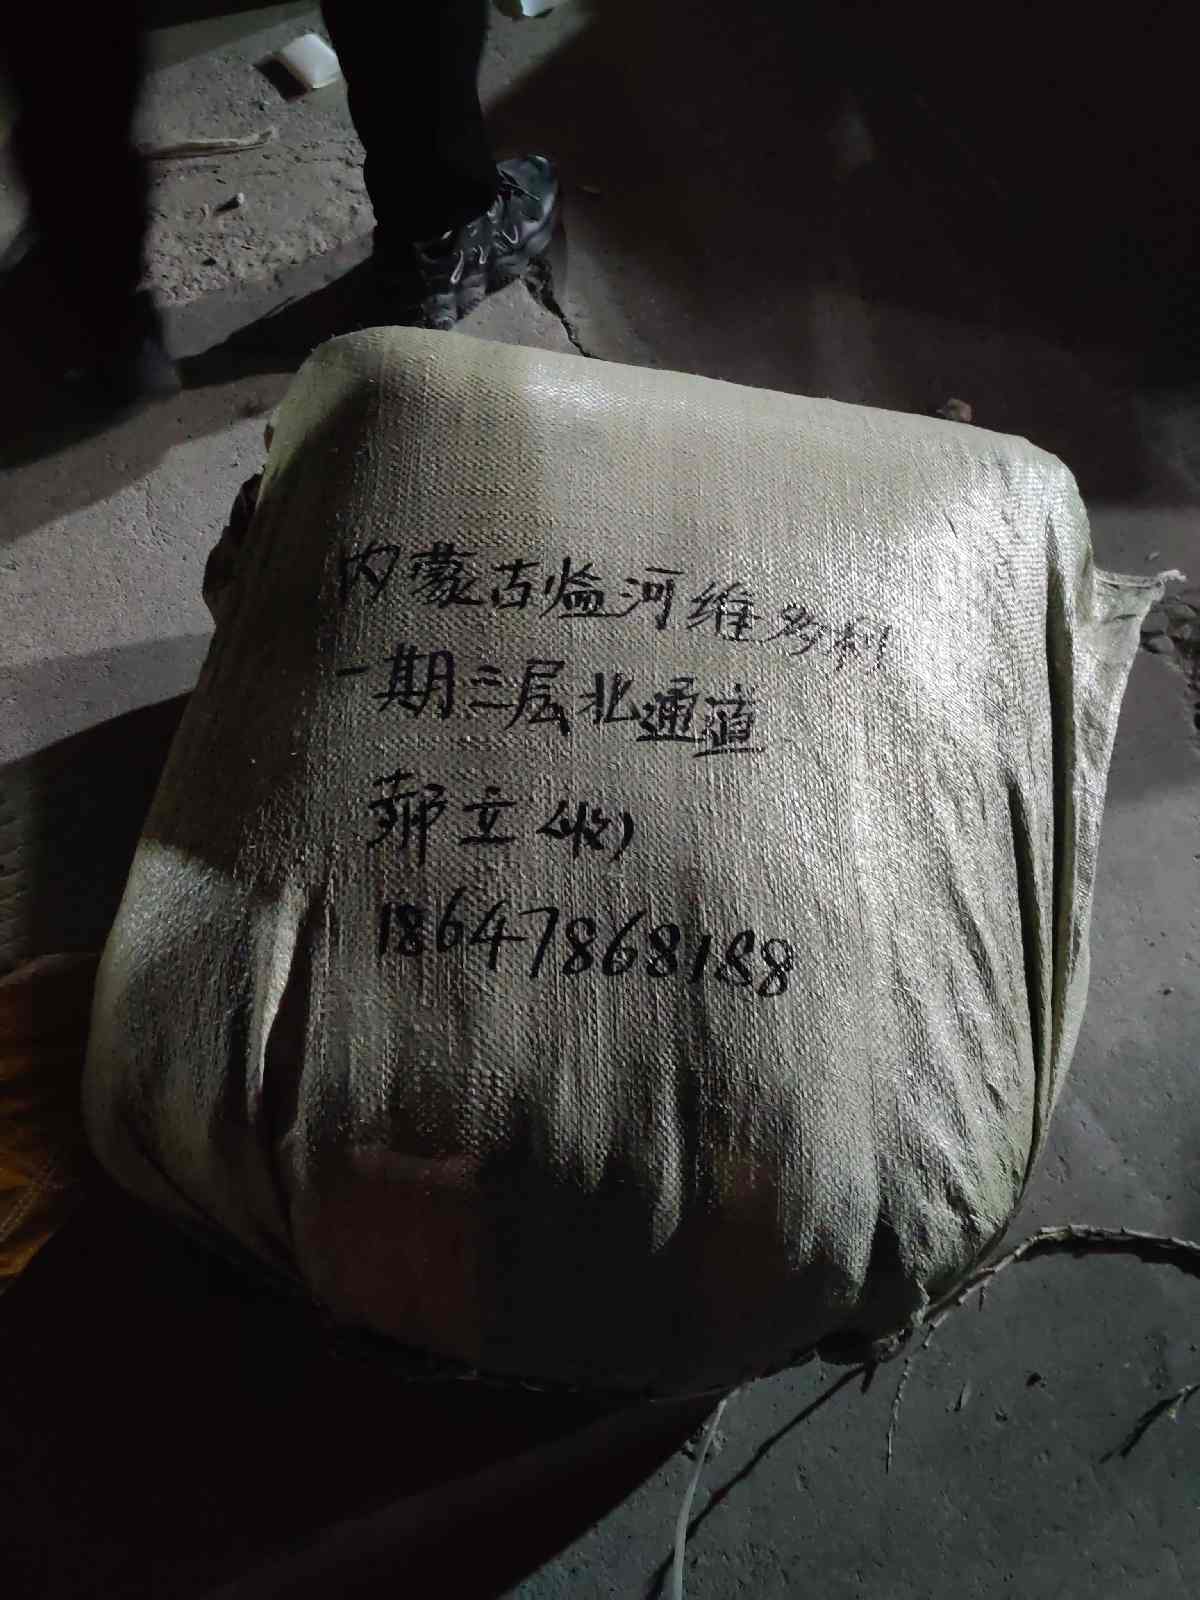 内蒙古临河维多利
一期三层北通道
郝立(收)
18647868188